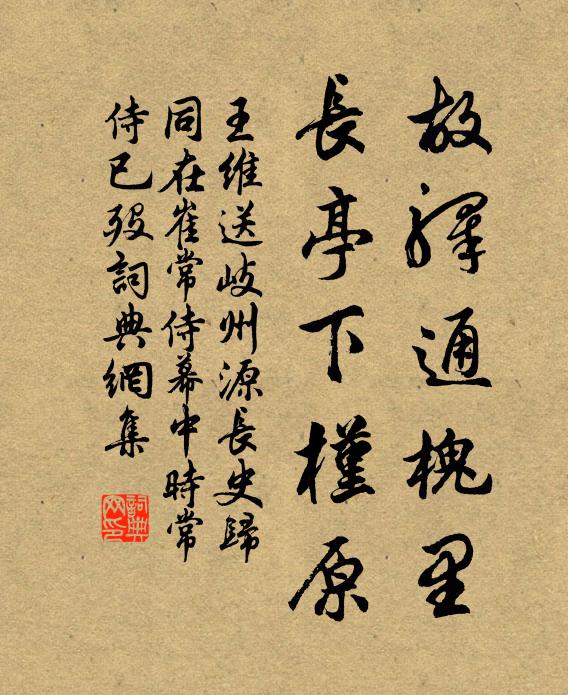 故驛通槐里
長亭下槿原
王維送岐州源長史歸
同在崔常侍幕中時常
侍已歿詞典網集
詞典网印